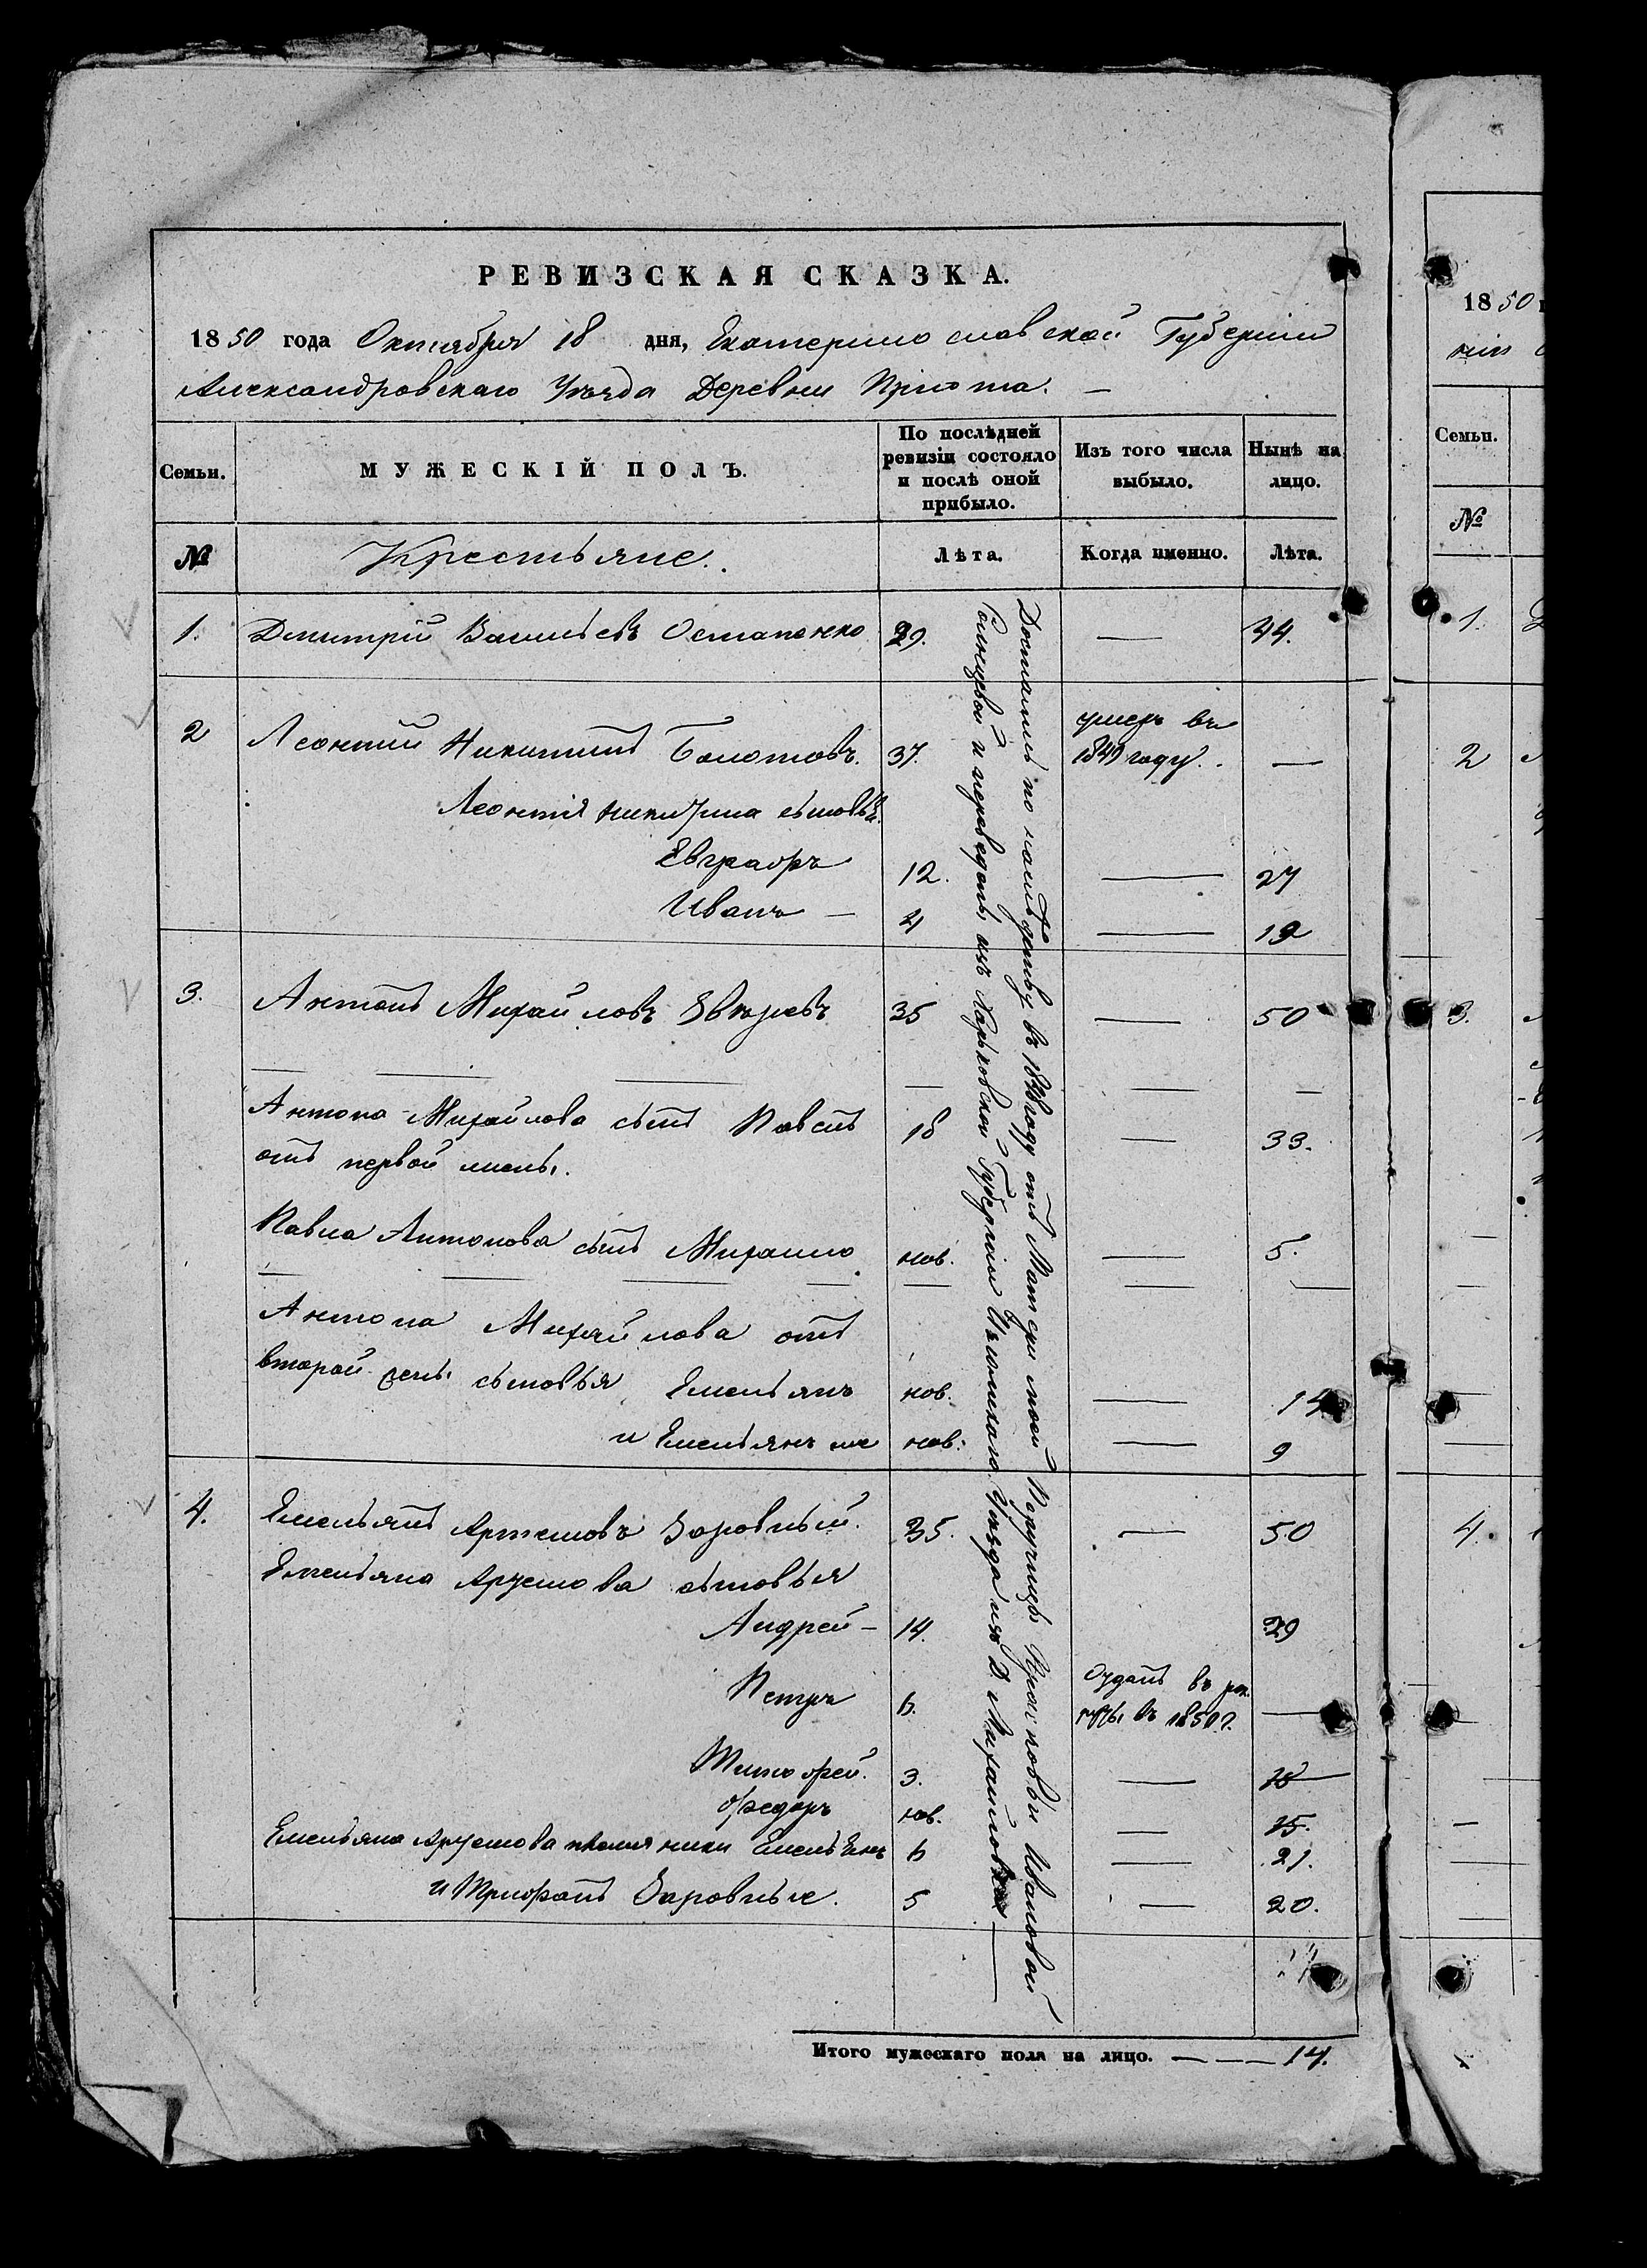 РЕВИЗСКАЯ СКАЗКА.
1850 года Октября 18 дня, Екатеринославской Губерніи
Александровскаго Уѣзда Деревни Пріюта. —
Семьи.
МУЖЕСКІЙ ПОЛЪ.
По послѣдней ревизіи состояло и послѣ оной прибыло.
Изъ того числа выбыло.
Нынѣ на лицо.
№
Крестьяне.
Лѣта.
Когда именно.
Лѣта.
1. Дмитрій Васильевъ Остапенко 29. — 44.
2 Леонтій Никитинъ Болотовъ. 37. умеръ въ 1849 году. —
Леонтія Никитина сыновья.
Евграфъ 12. — 27
Иванъ — 4 — 19
3. Антонъ Михайловъ Звѣревъ 35 — 50
Антона Михайлова сынъ Павелъ 18 — 33.
отъ первой жены.
Павла Антонова сынъ Михайло нов. — 5.
Антона Михайлова отъ
второй жены сыновья Емельянъ нов. — 14
и Емельянъ же нов. — 9
4. Емельянъ Артемовъ Заровный. 35. — 50
Емельяна Артемова сыновья
Андрей — 14. 29
Петръ 6. Отданъ въ рек руты въ 1850 г. —
Тимофей. 3. — 18
Федоръ нов. — 15.
Емельяна Артемова племянники Емельянъ 6 — 21.
и Трифонъ Заровные. 5 — 20.
Достались по наслѣдству въ 1848 году отъ Матери моей Поручицы Ивановой
и переведены изъ Харьковской Губерніи Изюмскаго Уѣзда изъ д. Михайловки
Итого мужескаго пола на лицо. — — — 14.
1850
нiи
Семьи.
№
1.
2
3.
4.